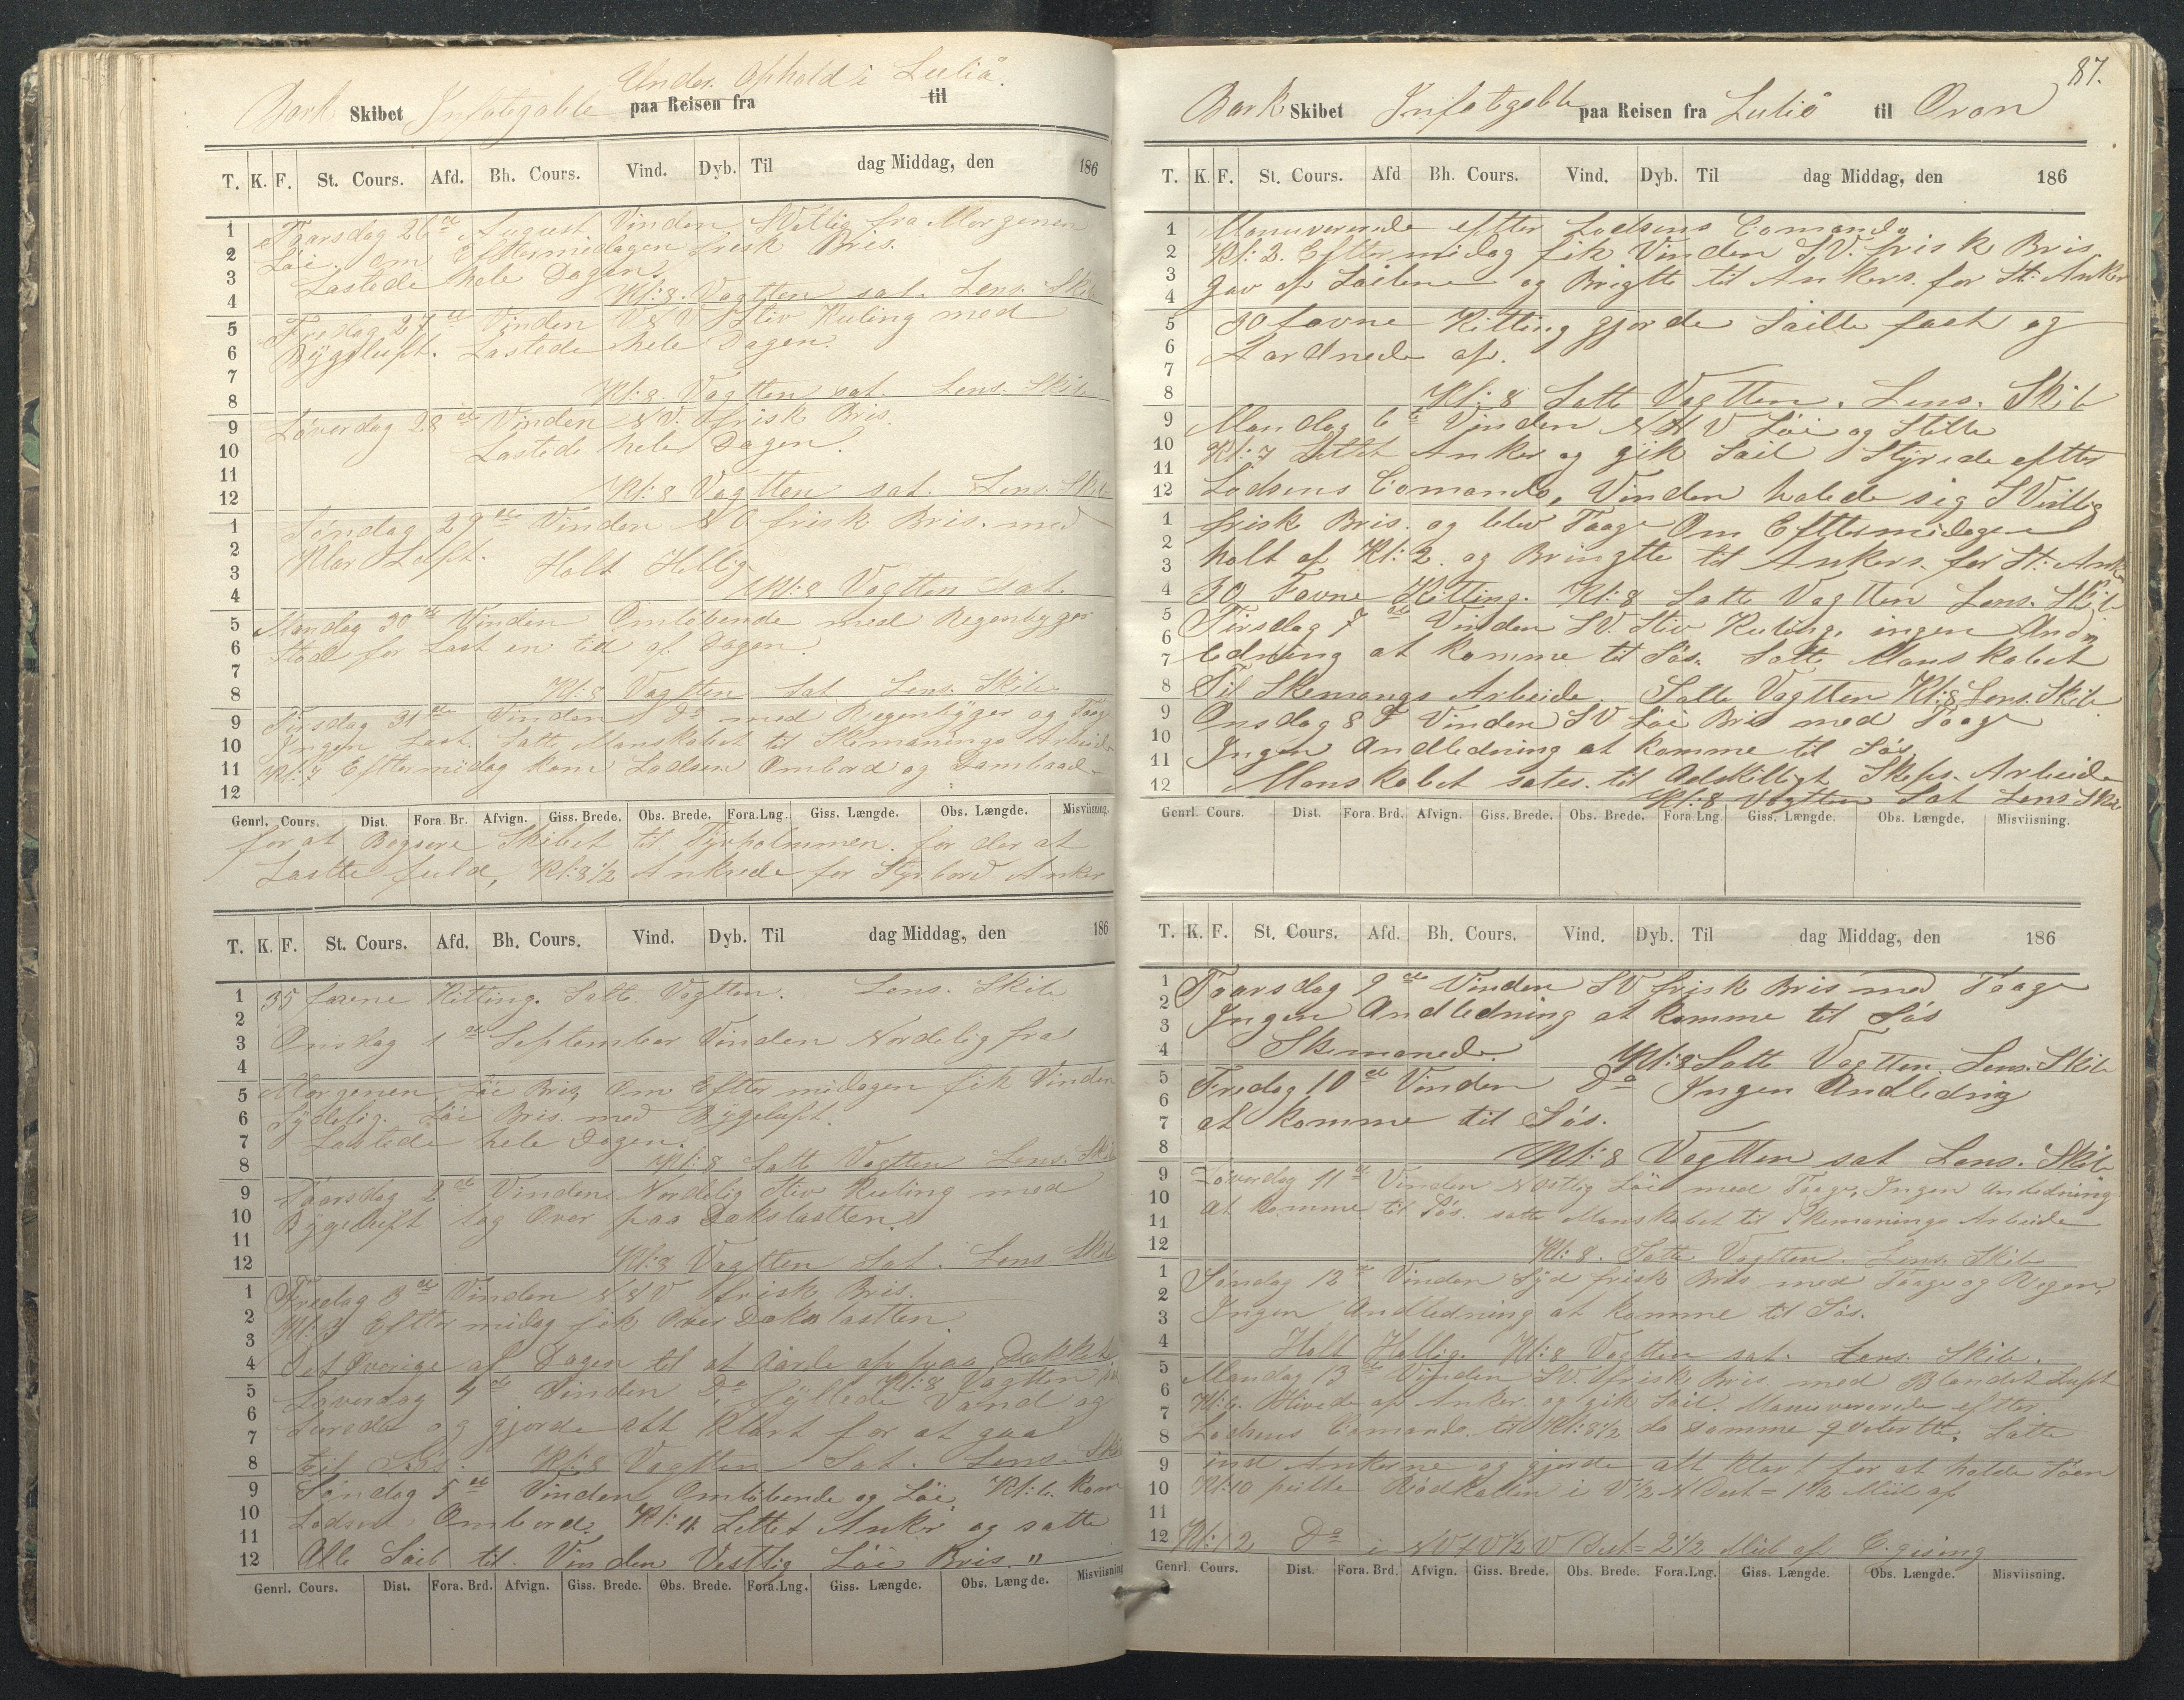 Under Ophold i Luliå.
Bark Skibet Infatigable paa Reisen fra til
T. K. F. St. Cours. Afd. Bh. Cours. Vind. Dyb. Til dag Middag, den 186
1 Taarsdag 26de August Vinden SVstlig fra Morgenen
2 Löi, om Eftermidagen frisk Bris.
3 Lastede hele Dagen.
4 Kl: 8. Vagtten sat. Lens. Skib
5 Fredag 27de Vinden VSV Stiv Kuling med
6 Bygeluft. Lastede hele Dagen.
7
8 Kl: 8. Vagtten sat. Lens. Skib
9 Löverdag 28de Vinden NV. frisk Bris.
10 Lastede hele Dagen.
11
12 Kl: 8 Vagtten sat. Lens. Skib
1 Söndag 29de Vinden NO frisk Bris. med
2 Klar Luft. Holt Hellig
3
4 Kl: 8 Vagtten sat.
5 Mandag 30de Vinden Omlöbende med Regenbyger
6 Stod for Last en tid af Dagen.
7
8 Kl: 8 Vagtten Sat Lens. Skib.
9 Tirsdag 31te Vinden Do med Regenbyger og Taage
10 Ingen Last. Satte Manskabet til Skemanings Arbeide
11 Kl: 7 Eftermidag kom Lodsen Ombord og Dambaad
12
Genrl. Cours. Dist. Fora. Br. Afvign. Giss. Brede. Obs. Brede. Fora.Lng. Giss. Længde. Obs. Længde. Misviisning.
for at Bogsere Skibet til Tjuvholmmen. for der at
Lastte fuld, Kl: 8 1/2 Ankrede for Styrbord Anker
T. K. F. St. Cours. Afd. Bh. Cours. Vind. Dyb. Til dag Middag, den 186
1 35 favne Kitting. Satte Vagtten. Lens. Skib
2
3 Onsdag 1de September Vinden Nordelig fra
4
5 Morgenen, Löi Bris, Om Eftermidagen fik Vinden
6 Sydelig. Löi Bris. med Bygeluft.
7 Lastede hele Dagen.
8 Kl: 8 Satte Vagtten Lens. Skib
9 Taarsdag 2de Vinden Nordelig Stiv Kuling med
10 Bygeluft tog Over paa Dækslastten.
11
12 Kl: 8 Vagtten Sat. Lens Skib
1 Fredag 3de Vinden NNV frisk Bris.
2 Kl: 3 Eftermidag fik Over Dækslastten.
3
4 Det Överige af Dagen til at Aarde af paa Dækket
Kl: 8 Vagtten
5 Löverdag 4de Vinden Do fyllede Vand og
6 Surede og gjorde alt klart for at gaa
7
8 til Söes. Kl: 8 Vagtten Sat. Lens. Skib
9 Söndag 5de Vinden Omlöbende og Löi, Kl: 6. kom
10 Lodsen Ombord. Kl: 11 Lettet Anker og satte
11
12 Alle Seil til. Vinden Vestlig Löi Bris. "
Genrl. Cours. Dist. Fora. Brd. Afvign. Giss. Brede. Obs. Brede. Fora.Lng. Giss. Længde. Obs. Længde. Misviisning
87.
Bark Skibet Infatigable paa Reisen fra Luliå til Oran
T. K. F. St. Cours. Afd Bh. Cours. Vind. Dyb. Til dag Middag, den 186
1 Manuverede efter Lodsens Comando
2 Kl: 2. Eftermidag fik Vinden SV. frisk Bris
3 gav af Seilene og Brigtte til Ankers. for St: Anker
4
5 30 favne Kitting gjorde Seille fast og
6 Aardnede af.
7
8 Kl: 8 Satte Vagtten. Lens. Skib
9 Mandag 6te Vinden NNV Löi og Stille
10 Kl: 7 Lettet Anker og gik Seil Styrede eftter
11
12 Lodsens Comando, Vinden halede sig SVestlig
1 frisk Bris. og blev Taage Om Eftermidagen
2 holt af Kl: 2. og Bringtte til Ankers. for St: Anker
3
4 30 Favne Kitting. Kl: 8 Satte Vagtten Lens. Skib
5 Tirsdag 7de Vinden SV. Stiv Kuling, ingen And
6
7 ledning at komme til Söes. Satte Manskabet
8 Til Skemangs Arbeide. Satte Vagtten Kl: 8 Lens. Skib
9 Onsdag 8de Vinden SV Löi Bris med Taage
10 Ingen Andledning at komme til Söes
11
12 Manskabet sates. til Adskilligt Skibs. Arbeide
Kl: 8 Vagtten Sat Lens Skib
Genrl. Cours. Dist. Fora. Brd. Afvign. Giss. Brede. Obs. Brede. Fora Lng. Giss. Længde. Obs. Længde. Misviisning.
T. K. F. St. Cours. Afd. Bh. Cours. Vind. Dyb. Til dag Middag, den 186
1 Taarsdag 9de Vinden SV frisk Bris med Taage
2 Ingen Andledning at komme til Söes
3
4 Skemanede. Kl: 8 Satte Vagtten. Lens. Skib
5 Fredag 10de Vinden Do Ingen Andledning
6
7 at komme til Söes.
8 Kl: 8 Vagtten sat Lens. Skib
9 Löverdag 11te Vinden NOstlig Löi med Taage, Ingen Andledning
10 at komme til Söes. satte Manskabet til Skemanings Arbeide
11
12 Kl: 8. Satte Vagtten. Lens. Skib
1 Söndag 12te Vinden Syd frisk Bris med Taage og Regen,
2
3 Ingen Andledning at komme til Söes.
4 Holt Hellig. Kl: 8 Vagtten sat. Lens. Skib.
5 Mandag 13de Vinden SV. frisk Bris med Blandet Luft
6 Kl: 6. Hivede af Anker. og gik Seil. Manuverede eftter.
7 Lodsens Comando. til Kl: 8 1/2 da samme qvitertte. Satte
8
9 ind Ankerne og gjorde alt klart for at holde Söen
10 Kl: 10 peilte Rödkallen i V 1/2 N Dist = 1 1/2 Miil af
11
12 Kl: 12 Do i NVtV 1/2 V Dist = 2 1/2 Miil af
Genrl Cours. Dist. Fora. Brd. Afvign. Giss. Brede. Obs. Brede. Fora.Lng. Giss. Længde. Obs. Længde. Misviisning.